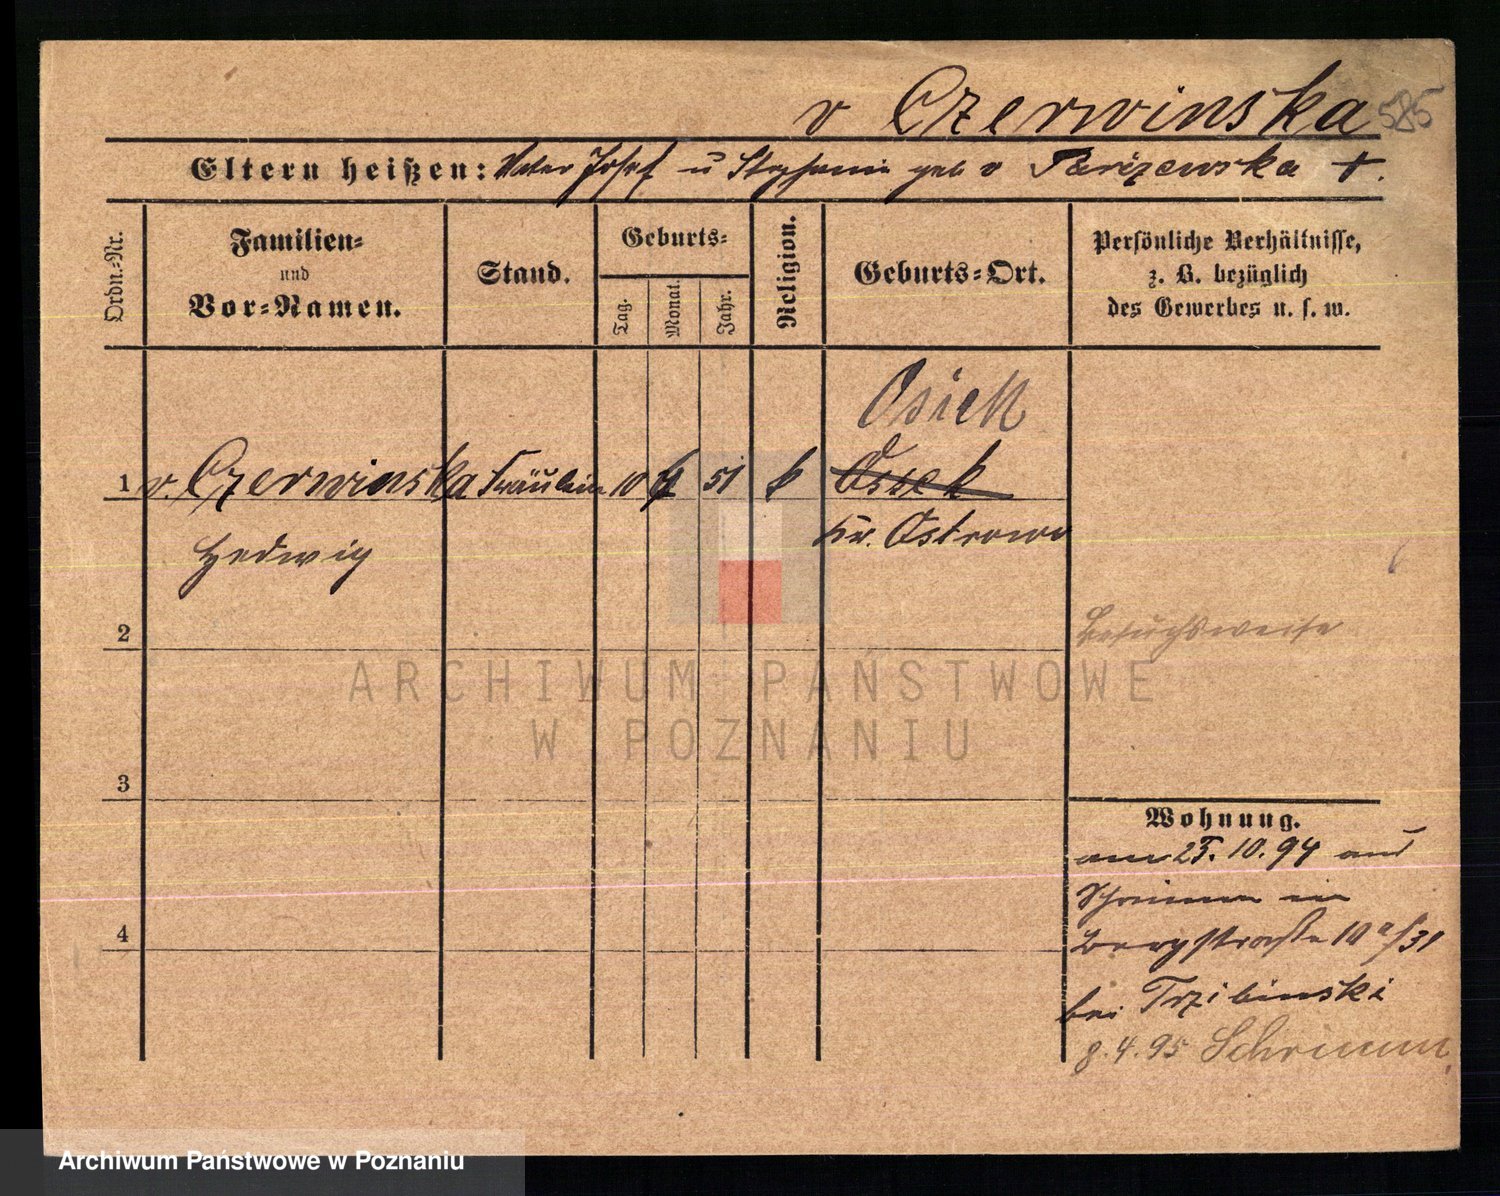 v Czerwinska 585
Eltern heißen: Vater Josef u Stephanie geb v Parizewska †.
Ordn.-Nr.
Familien-
und
Vor-Namen.
Stand.
Geburts-
Tag.
Monat.
Jahr.
Religion.
Geburts-Ort.
Persönliche Verhältnisse,
z. B. bezüglich
des Gewerbes u. s. w.
Osiek
1 v. Czerwinska Fräulein 10 51 k Ossek
Kr. Ostrowo
Hedwig
Besuchsweise
2
ARCHIWUM PAŃSTWOWE
W POZNANIU
3
Wohnung.
am 25. 10. 94 aus
Schrimm in
4
Bergstraße 10a/31
bei Trzibinski
8. 4. 95 Schrimm
Archiwum Państwowe w Poznaniu